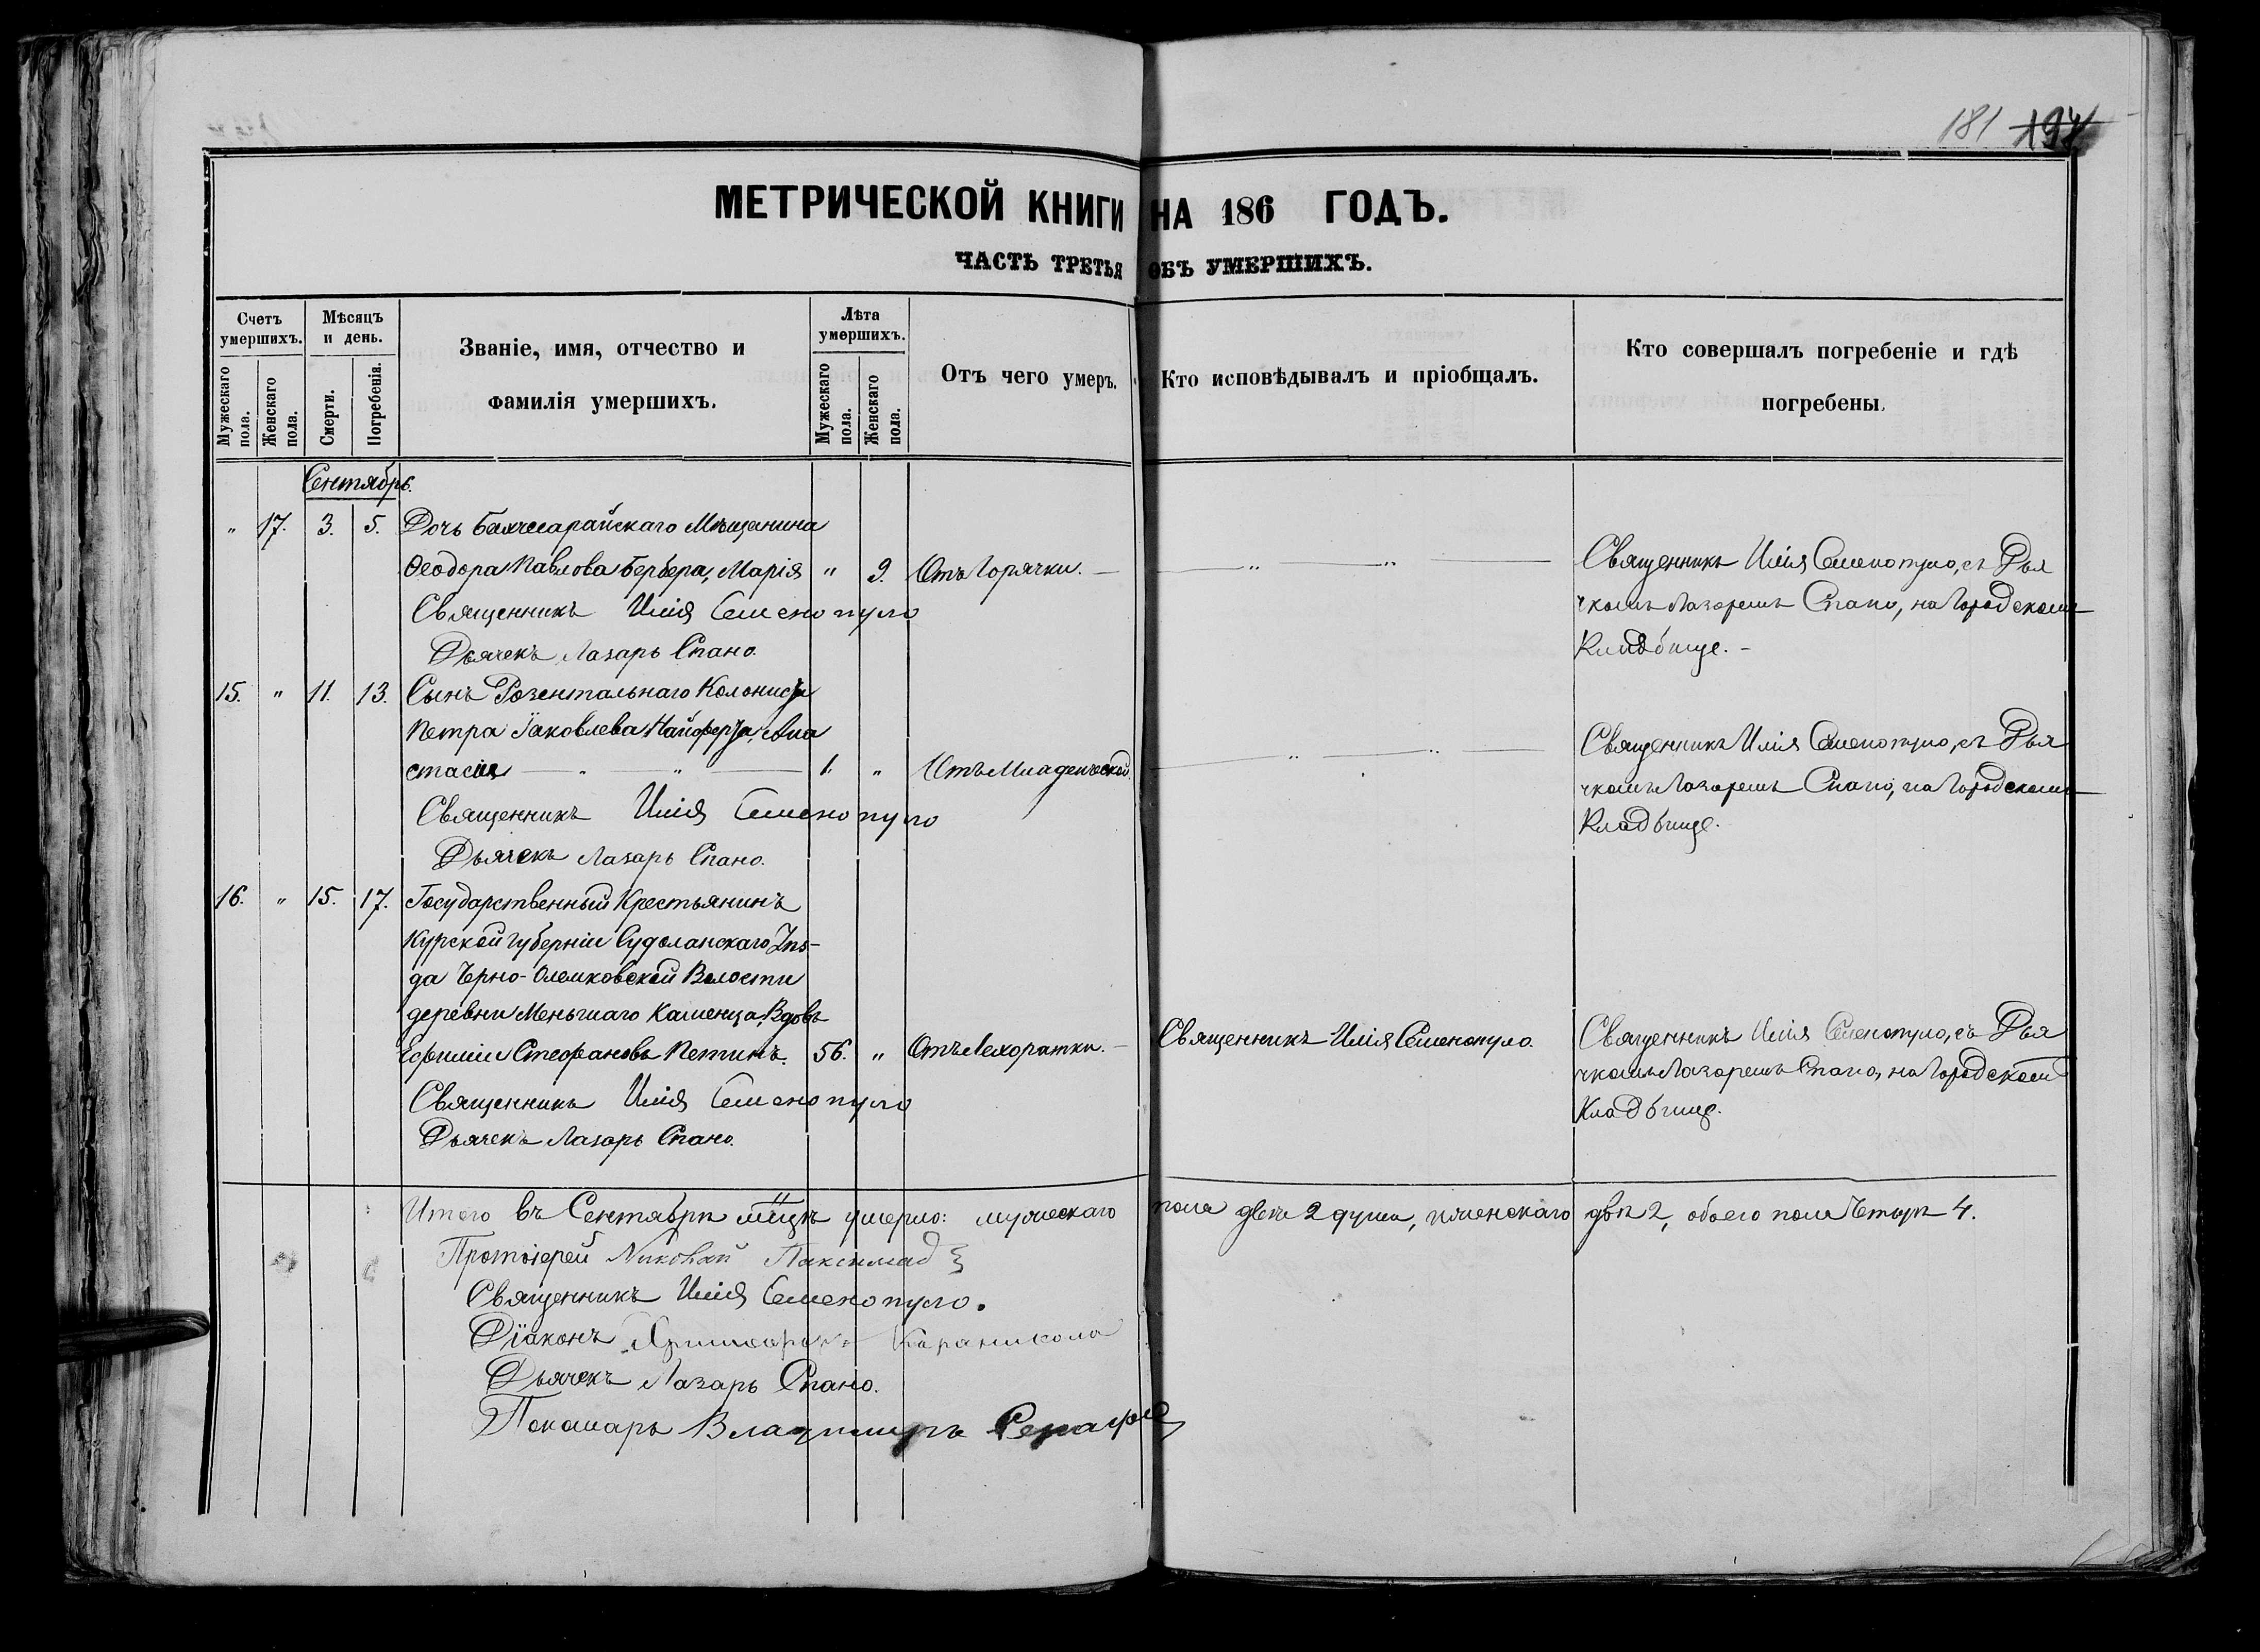 181 194
МЕТРИЧЕСКОЙ КНИГИ НА 186 ГОДЪ.
ЧАСТЬ ТРЕТЬЯ ОБЪ УМЕРШИХЪ.
Счетъ умершихъ.
Мужескаго пола.
Женскаго пола.
Мѣсяцъ и день.
Смерти.
Погребенія.
Званіе, имя, отчество и
фамилія умершихъ.
Лѣта умершихъ.
Мужескаго пола.
Женскаго пола.
Отъ чего умеръ.
Кто исповѣдывалъ и пріобщалъ.
Кто совершалъ погребеніе и гдѣ
погребены.
Сентябрь.
" 17. 3. 5. Дочь Бахчисарайскаго Мѣщанина
Ѳеодора Павлова Бербера, Марія " 9. Отъ Горячки. — " " — Священникъ Илія Семенопуло, съ Дья
Священникъ Илія Семенопуло чкомъ Лазаремъ Спано, на Городскомъ
Дьячекъ Лазарь Спано. Кладбище. -
15. " 11. 13. Сынъ Розентальнаго Колониста
Петра Іаковлева Найферта, Ана Священникъ Илія Семенопуло, съ Дья
стасія — " " — 1. " Отъ Младенческой. — " " — чкомъ Лазаремъ Спано, на Городскомъ
Священникъ Илія Семенопуло Кладбище.
Дьячекъ Лазарь Спано.
16. " 15. 17. Государственный Крестьянинъ
Курской Губерніи Суджанскаго Уѣз-
да Черно-Олешковской Волости
деревни Меньшаго Каменца, Вдовъ
Ефимій Стефановъ Петинъ. 56. " Отъ Лехоратки. — Священникъ Илія Семенопуло. Священникъ Илія Семенопуло, съ Дья
Священникъ Илія Семенопуло чкомъ Лазаремъ Спано, на Городскомъ
Дьячекъ Лазарь Спано. Кладбище.
Итого въ Сентябрѣ мцѣ умерло: мужескаго пола двѣ 2 души, женскаго двѣ 2, обоего пола Четыре 4.
Протоіерей Николай Паксимад
Священникъ Илія Семенопуло.
Діаконъ Христофоръ Караникола
Дьячекъ Лазарь Спано.
Пономарь Владимиръ